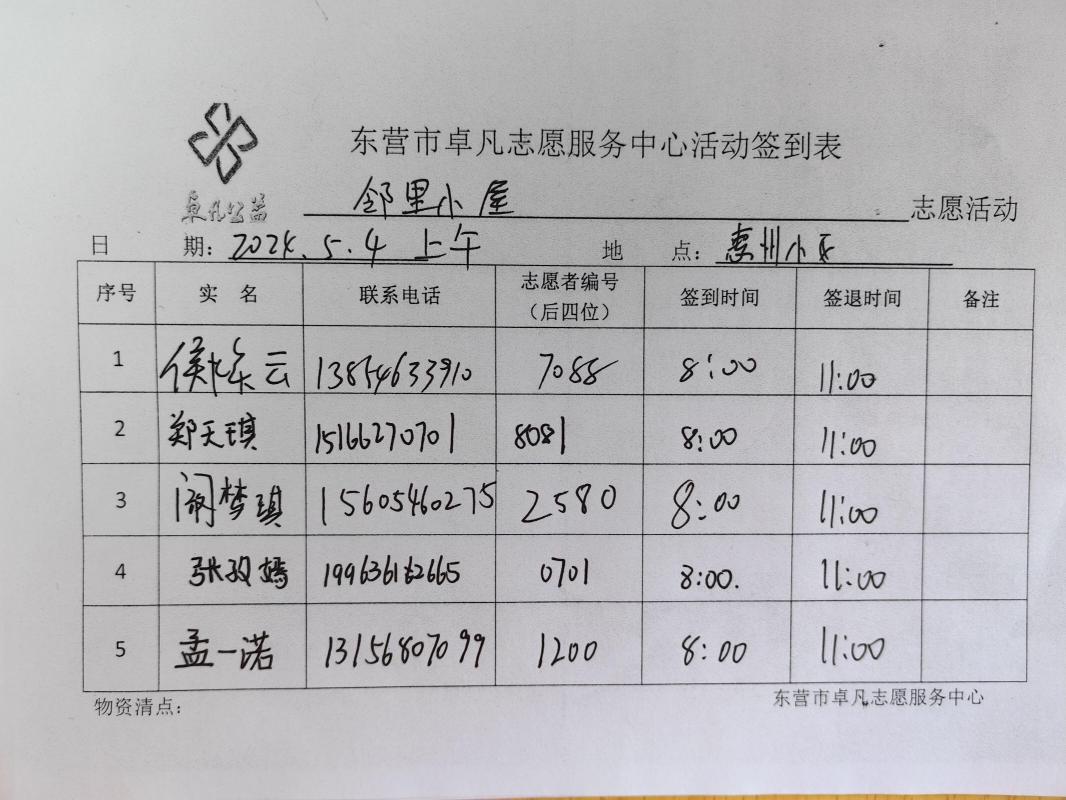 东营市卓凡志愿服务中心活动签到表
卓凡公益
邻里小屋 志愿活动
日 期：2024.5.4 上午 地 点：惠州小区
序号 实 名 联系电话 志愿者编号（后四位） 签到时间 签退时间 备注
1 侯 云 13854633910 7088 8:00 11:00
2 郑天琪 15166270701 8081 8:00 11:00
3 梦琪 15605460275 2580 8:00 11:00
4 张嫣 0701 8:00. 11:00
5 孟一诺 13156807099 1200 8:00 11:00
物资清点： 东营市卓凡志愿服务中心